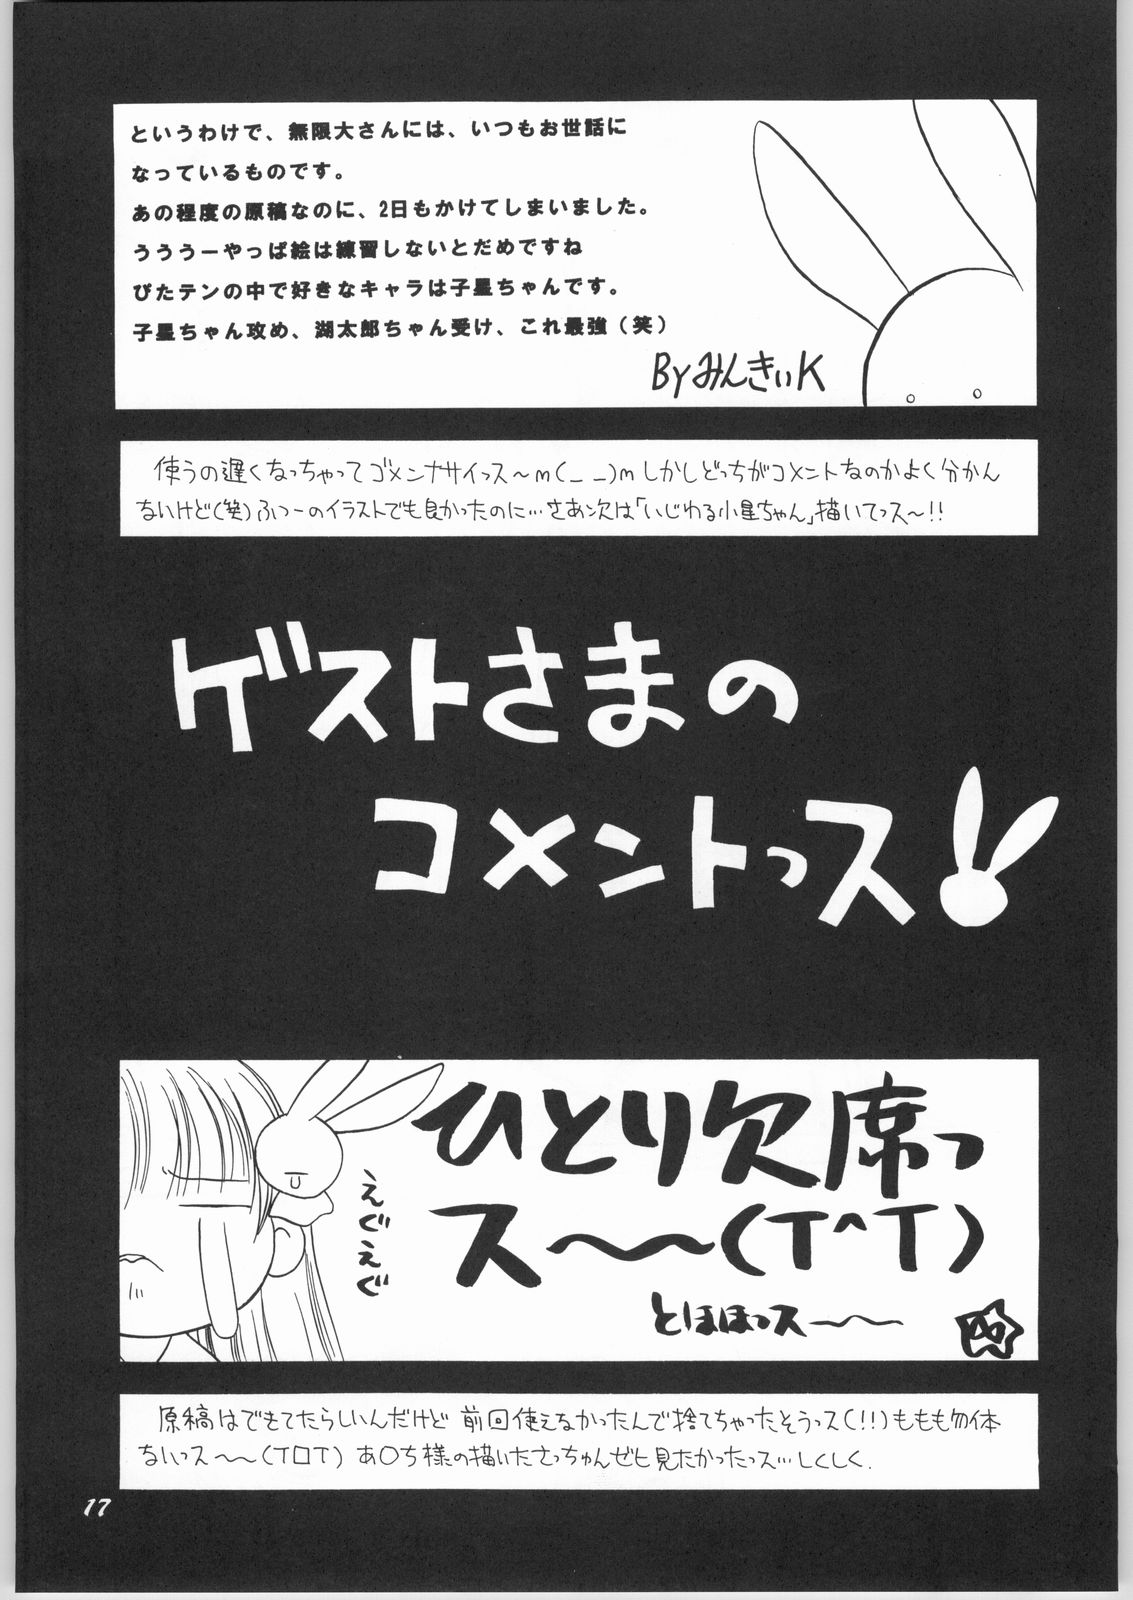 というわけで、無限大さんには、いつもお世話に
なっているものです。
あの程度の原稿なのに、2日もかけてしまいました。
うううーやっぱ絵は練習しないとだめですね
ぴたテンの中で好きなキャラは子星ちゃんです。
子星ちゃん攻め、湖太郎ちゃん受け、これ最強（笑）
By みんきぃK
使うの遅くなっちゃってゴメンナサイっス～m(_ _)m しかしどっちがコメントなのかよく分かん
ないけど(笑) ふつーのイラストでも良かったのに…さあ次は「いじわる小星ちゃん」描いてっス～!!
ゲストさまの
コメントっス
ひとり欠席っ
ス～～(T^T)
えぐえぐ
とほほっス～～
原稿はできてたらしいんだけど 前回使えなかったんで捨てちゃったそうっス(!!) ももも勿体
ないっス～～(T□T) あ○ち様の描いたさっちゃんゼヒ見たかったっス…しくしく.
17